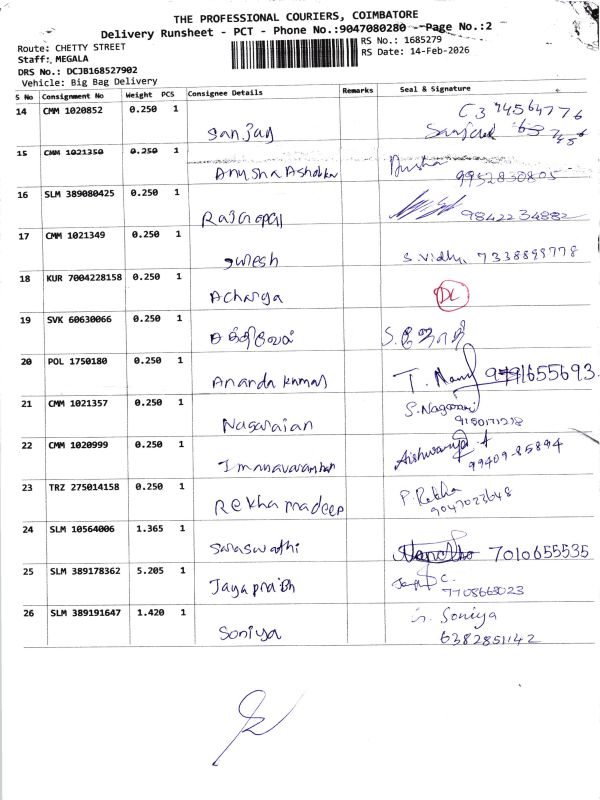 THE PROFESSIONAL COURIERS, COIMBATORE
Delivery Runsheet - PCT - Phone No.:9047080280 Page No.:2
Route: CHETTY STREET
Staff: MEGALA
DRS No.: DCJB168527902
Vehicle: Big Bag Delivery
RS No.: 1685279
RS Date: 14-Feb-2026
S No Consignment No Weight PCS Consignee Details Remarks Seal & Signature
14 CMM 1020852 0.250 1 Sanjay
15 CMM 1021350 0.250 1 Anusha Ashokkar Anusha 9952830805
16 SLM 389080425 0.250 1 Rajagopal 9842234882
17 CMM 1021349 0.250 1 Suresh S. Vidhu 7338899778
18 KUR 7004228158 0.250 1 Acharya DL
19 SVK 60630066 0.250 1 சக்திவேல்
20 POL 1750180 0.250 1 Ananda Kumar T. 9791655693
21 CMM 1021357 0.250 1 Nagaraian S. Nagarani
22 CMM 1020999 0.250 1 Aishwarya 99409-85894
23 TRZ 275014158 0.250 1 Rekha Pradeep P. Rekha 9047023648
24 SLM 10564006 1.365 1 Saraswathi 7010655535
25 SLM 389178362 5.205 1 7708663023
26 SLM 389191647 1.420 1 Soniya Soniya 6382851142